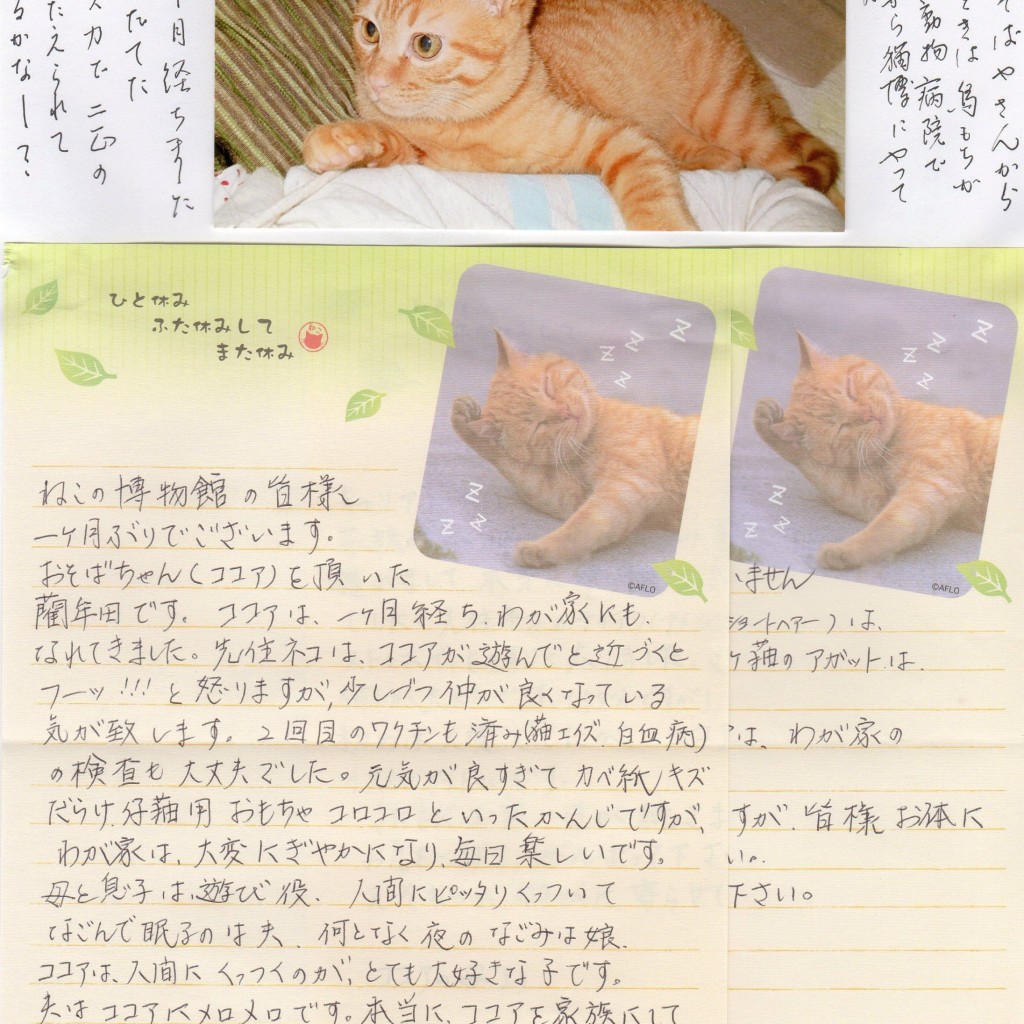 そばやさんから
ときは鳥もちが
動物病院で
ら猫博にやって
ヶ月経ちました
たてた
スカで二匹の
たえられて
るかなー？
ひと休み
ふた休みして
また休み
ねこ
Z Z Z
Z Z Z
©AFLO
Z Z Z
Z Z Z
©AFLO
ねこの博物館の皆様へ
一ヶ月ぶりでございます。
おそばちゃん(ココア)を頂いた
藺牟田です。ココアは、一ヶ月経ち、わが家にも、
なれてきました。先住ネコは、ココアが遊んでと近づくと
フーッ!!!と怒りますが、少しづつ仲が良くなっている
気が致します。2回目のワクチンも済み(猫エイズ、白血病)
の検査も大丈夫でした。元気が良すぎてカベ紙キズ
だらけ、仔猫用おもちゃコロコロといったかんじですが、
わが家は、大変にぎやかになり、毎日楽しいです。
母と息子は、遊び役、人間にピッタリくっついて
なごんで眠るのは夫、何となく夜のなごみは娘、
ココアは、人間にくっつくのが、とても大好きな子です。
夫はココアにメロメロです。本当に、ココアを家族にして
いません
ショートヘアー)は、
ケ猫のアガットは、
は、わが家の
すが、皆様お体に
い。
下さい。